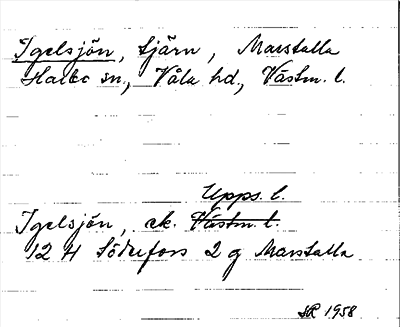 Igelsjön, tjärn, Marstalla
Harbo sn, Våla hd, Västm. l.
Upps. l.
Igelsjön, ek. Västm. l.
12 H Söderfors 2 g Marstalla
SR 1958